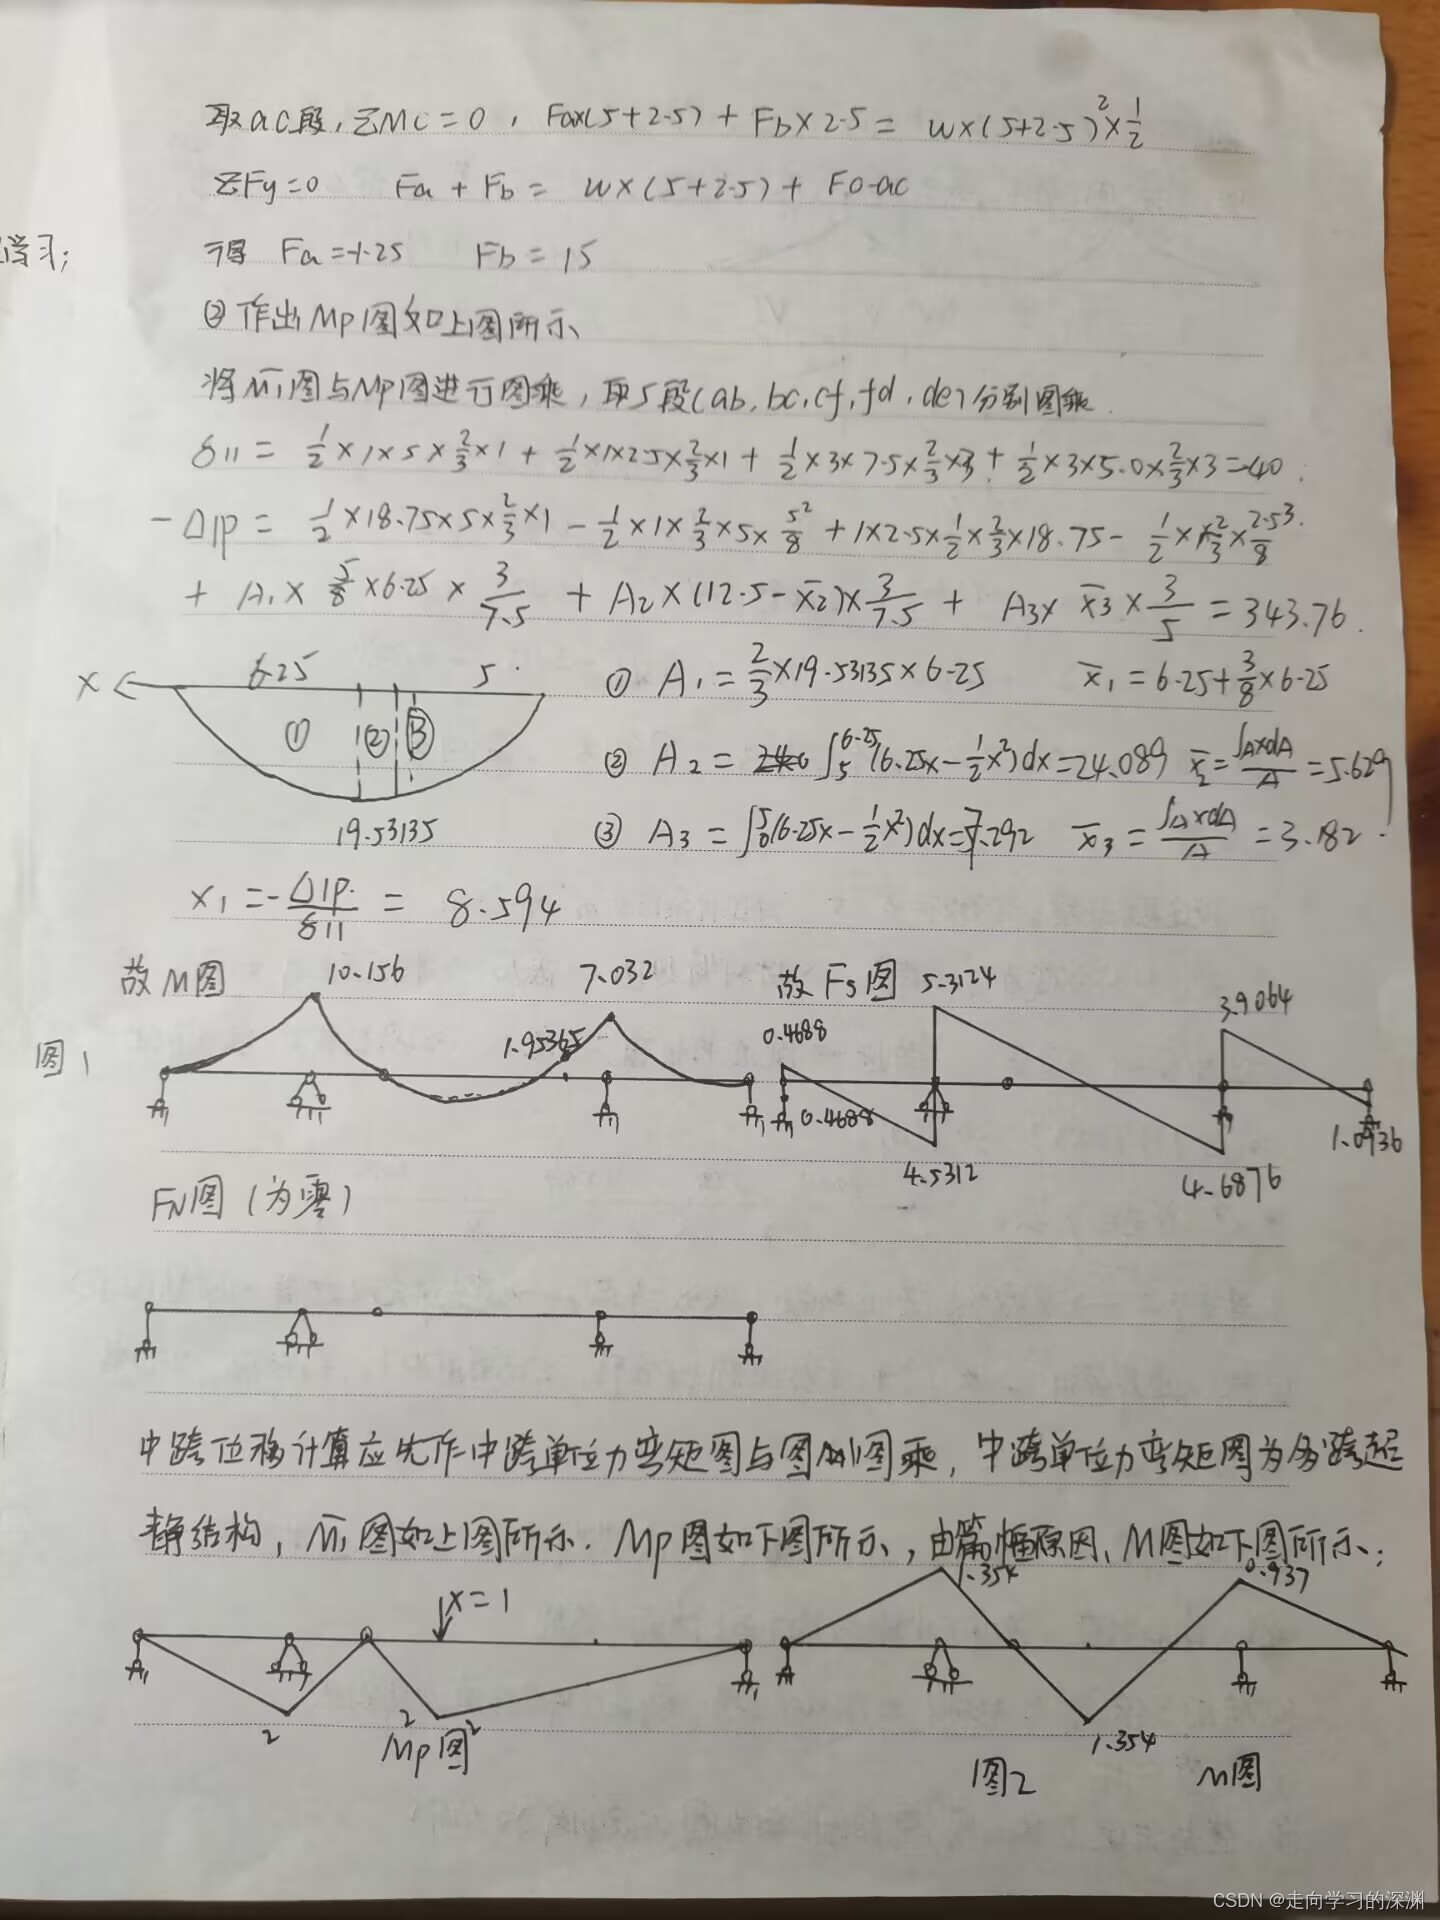 取ac段，ΣMc=0，Fa×(5+2.5)+Fb×2.5= w×(5+2.5)²×1/2
ΣFy=0 Fa+Fb= w×(5+2.5)+F0-ac
学习;
得 Fa=-1.25 Fb=15
② 作出Mp图如上图所示
将M̄1图与Mp图进行图乘，取5段(ab,bc,cf,fd,de)分别图乘.
δ11= 1/2×1×5×2/3×1+1/2×1×2.5×2/3×1+1/2×3×7.5×2/3×3+1/2×3×5.0×2/3×3=40.
-Δ1p= 1/2×18.75×5×2/3×1-1/2×1×2/3×5×5²/8+1×2.5×1/2×2/3×18.75-1/2×1×2/3×2.5³/8
+A1×5/8×6.25×3/7.5+A2×(12.5-x̄2)×3/7.5+A3×x̄3×3/5=343.76.
x 6.25 5 ① A1=2/3×19.53135×6.25 x̄1=6.25+3/8×6.25
① ② ③
② A2= ∫5^6.25(6.25x-1/2x²)dx=24.089 x̄2=∫AxdA/A=5.629
19.53135 ③ A3=∫0^5(6.25x-1/2x²)dx= .292 x̄3=∫AxdA/A=3.182.
x1=-Δ1p/δ11= 8.594
故M图 10.156 7.032 故Fs图 5.3124 3.9064
图1 1.95365 0.4688
0.4688 1.0936
4.5312 4.6876
FN图(为零)
中跨位移计算应先作中跨单位力弯矩图与图 图乘，中跨单位力弯矩图为多跨超
静结构，M̄1图如上图所示.Mp图如下图所示，由篇幅原因、M图如下图所示;
x=1 1.354 0.937
2 2 2 1.354
Mp图 图2 M图
CSDN @走向学习的深渊